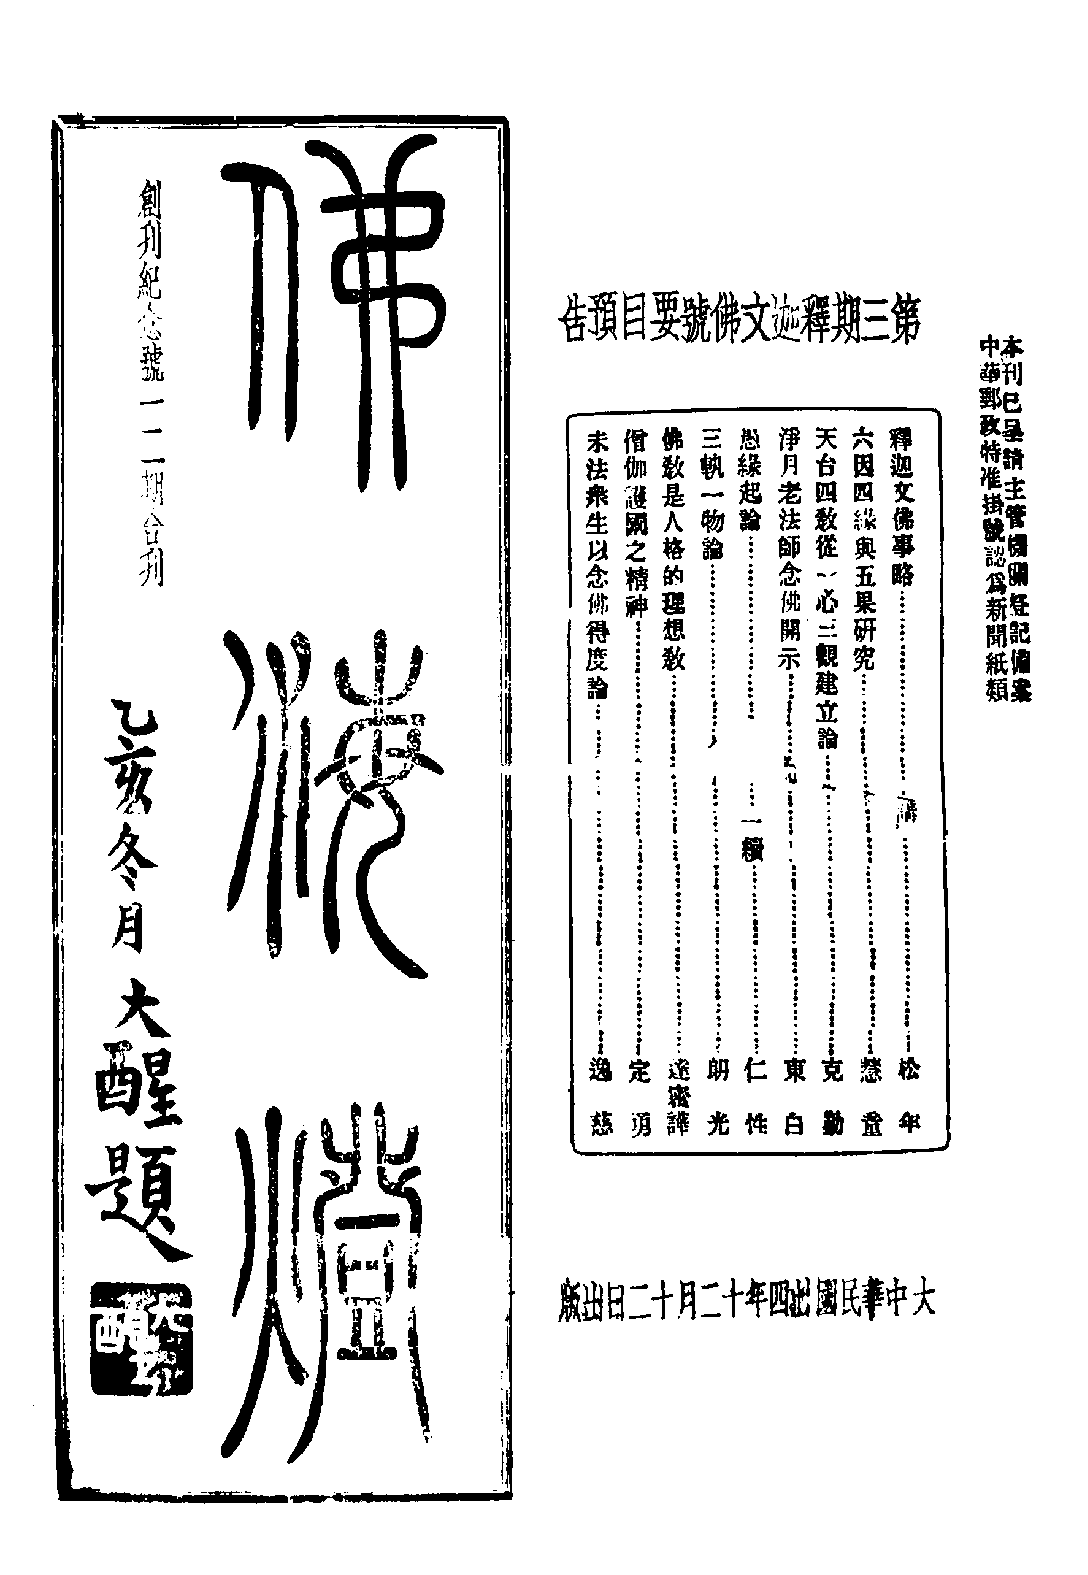 本刊已呈請主管機關登記備案
中華郵政特准掛號認為新聞紙類
第三期釋迦文佛號要目預告
釋迦文佛事略……講……松年
六因四緣與五果研究……慧童
天台四教從一心三觀建立論……克勤
淨月老法師念佛開示……東白
愚緣起論……一續……仁性
三執一物論……朗光
佛教是人格的理想教……達密譯
僧伽護國之精神……定勇
末法衆生以念佛得度論……逸慈
大中華民國廿四年十二月十二日出版
佛海燈
創刊紀念號一二期合刊
乙亥冬月大醒題